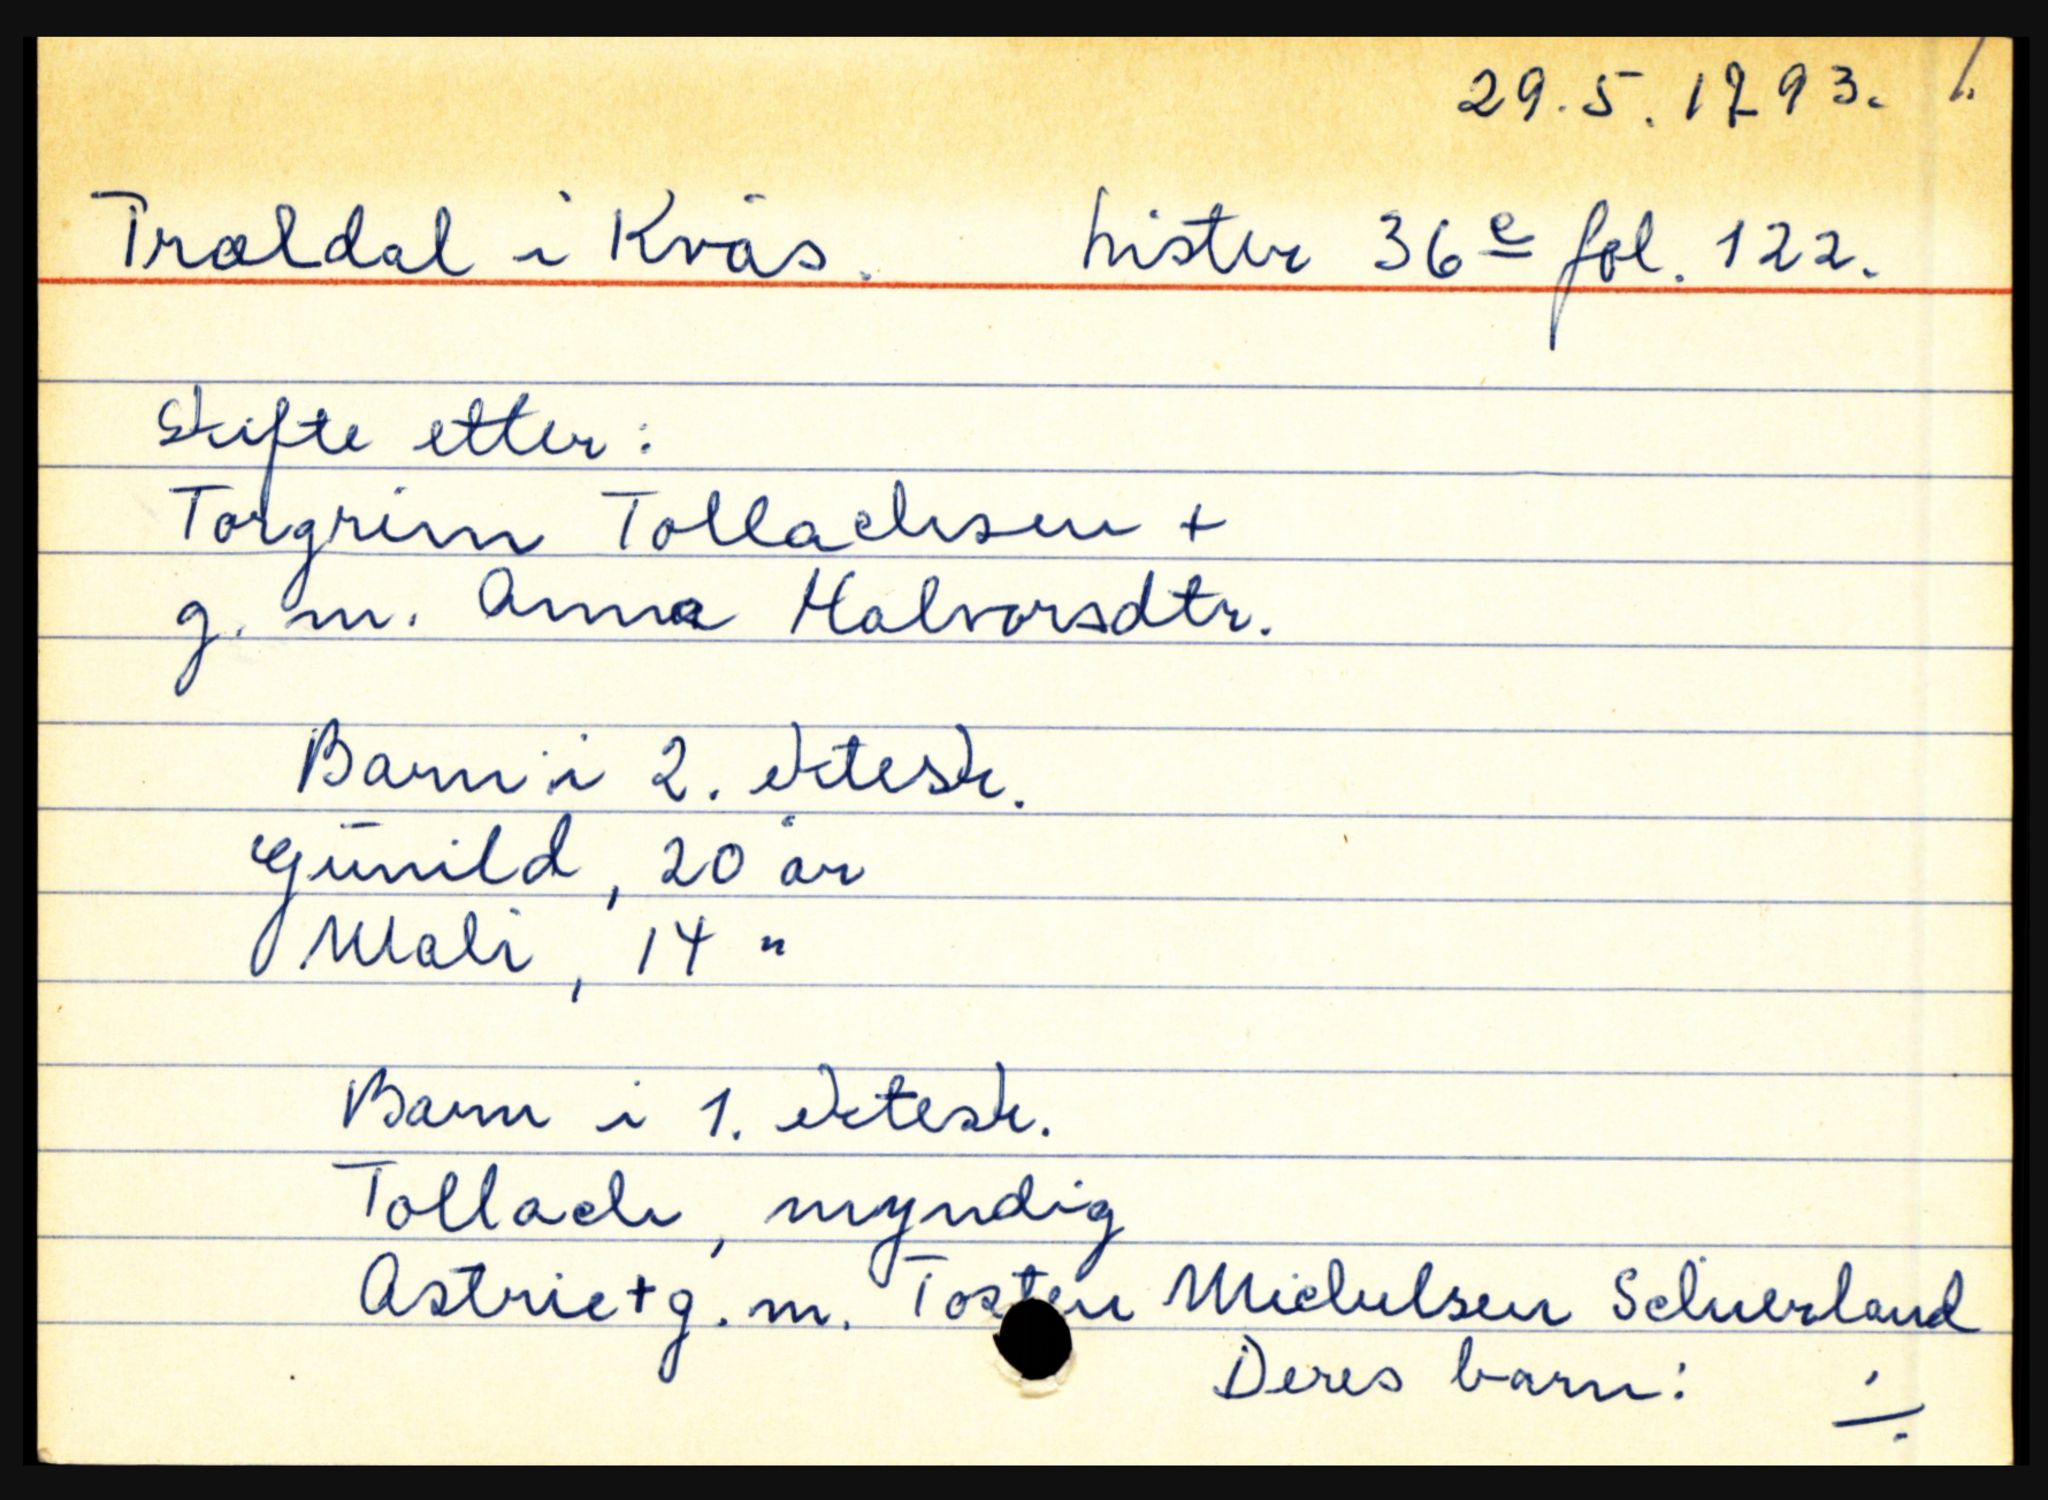 29.5.1793. /.
Træeldal i Kvås. Lister 36 e fol. 122.
Skifte etter:
Torgrim Tollachsen +
g. m. Anna Halvorsdtr.
Barn i 2. ektesk.
Gūnild, 20 år
Mali, 14 "
Barn i 1. ektesk.
Tollach, myndig
Astrie + g. m. Tosten Michelsen
Deres barn: ./.